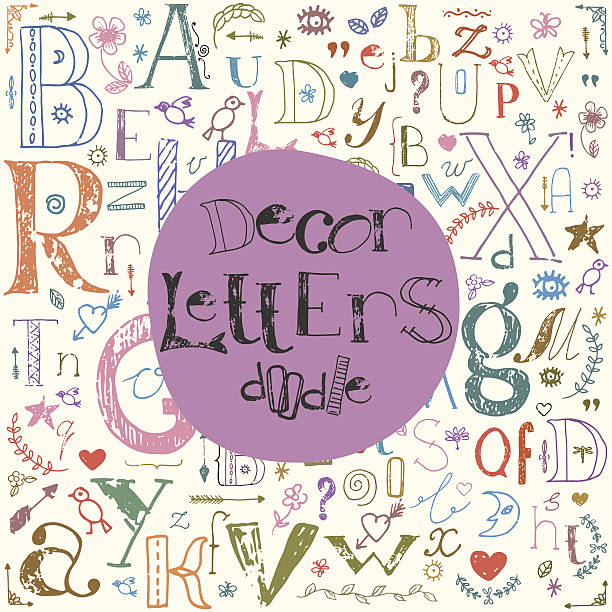 B A U D " e j b z U P V "
E D y ? !
w { B w X A
R r n d
Decor
LettErs
doodle
T n G g M
q S Q f D
B ?
a y z k f V w x h t